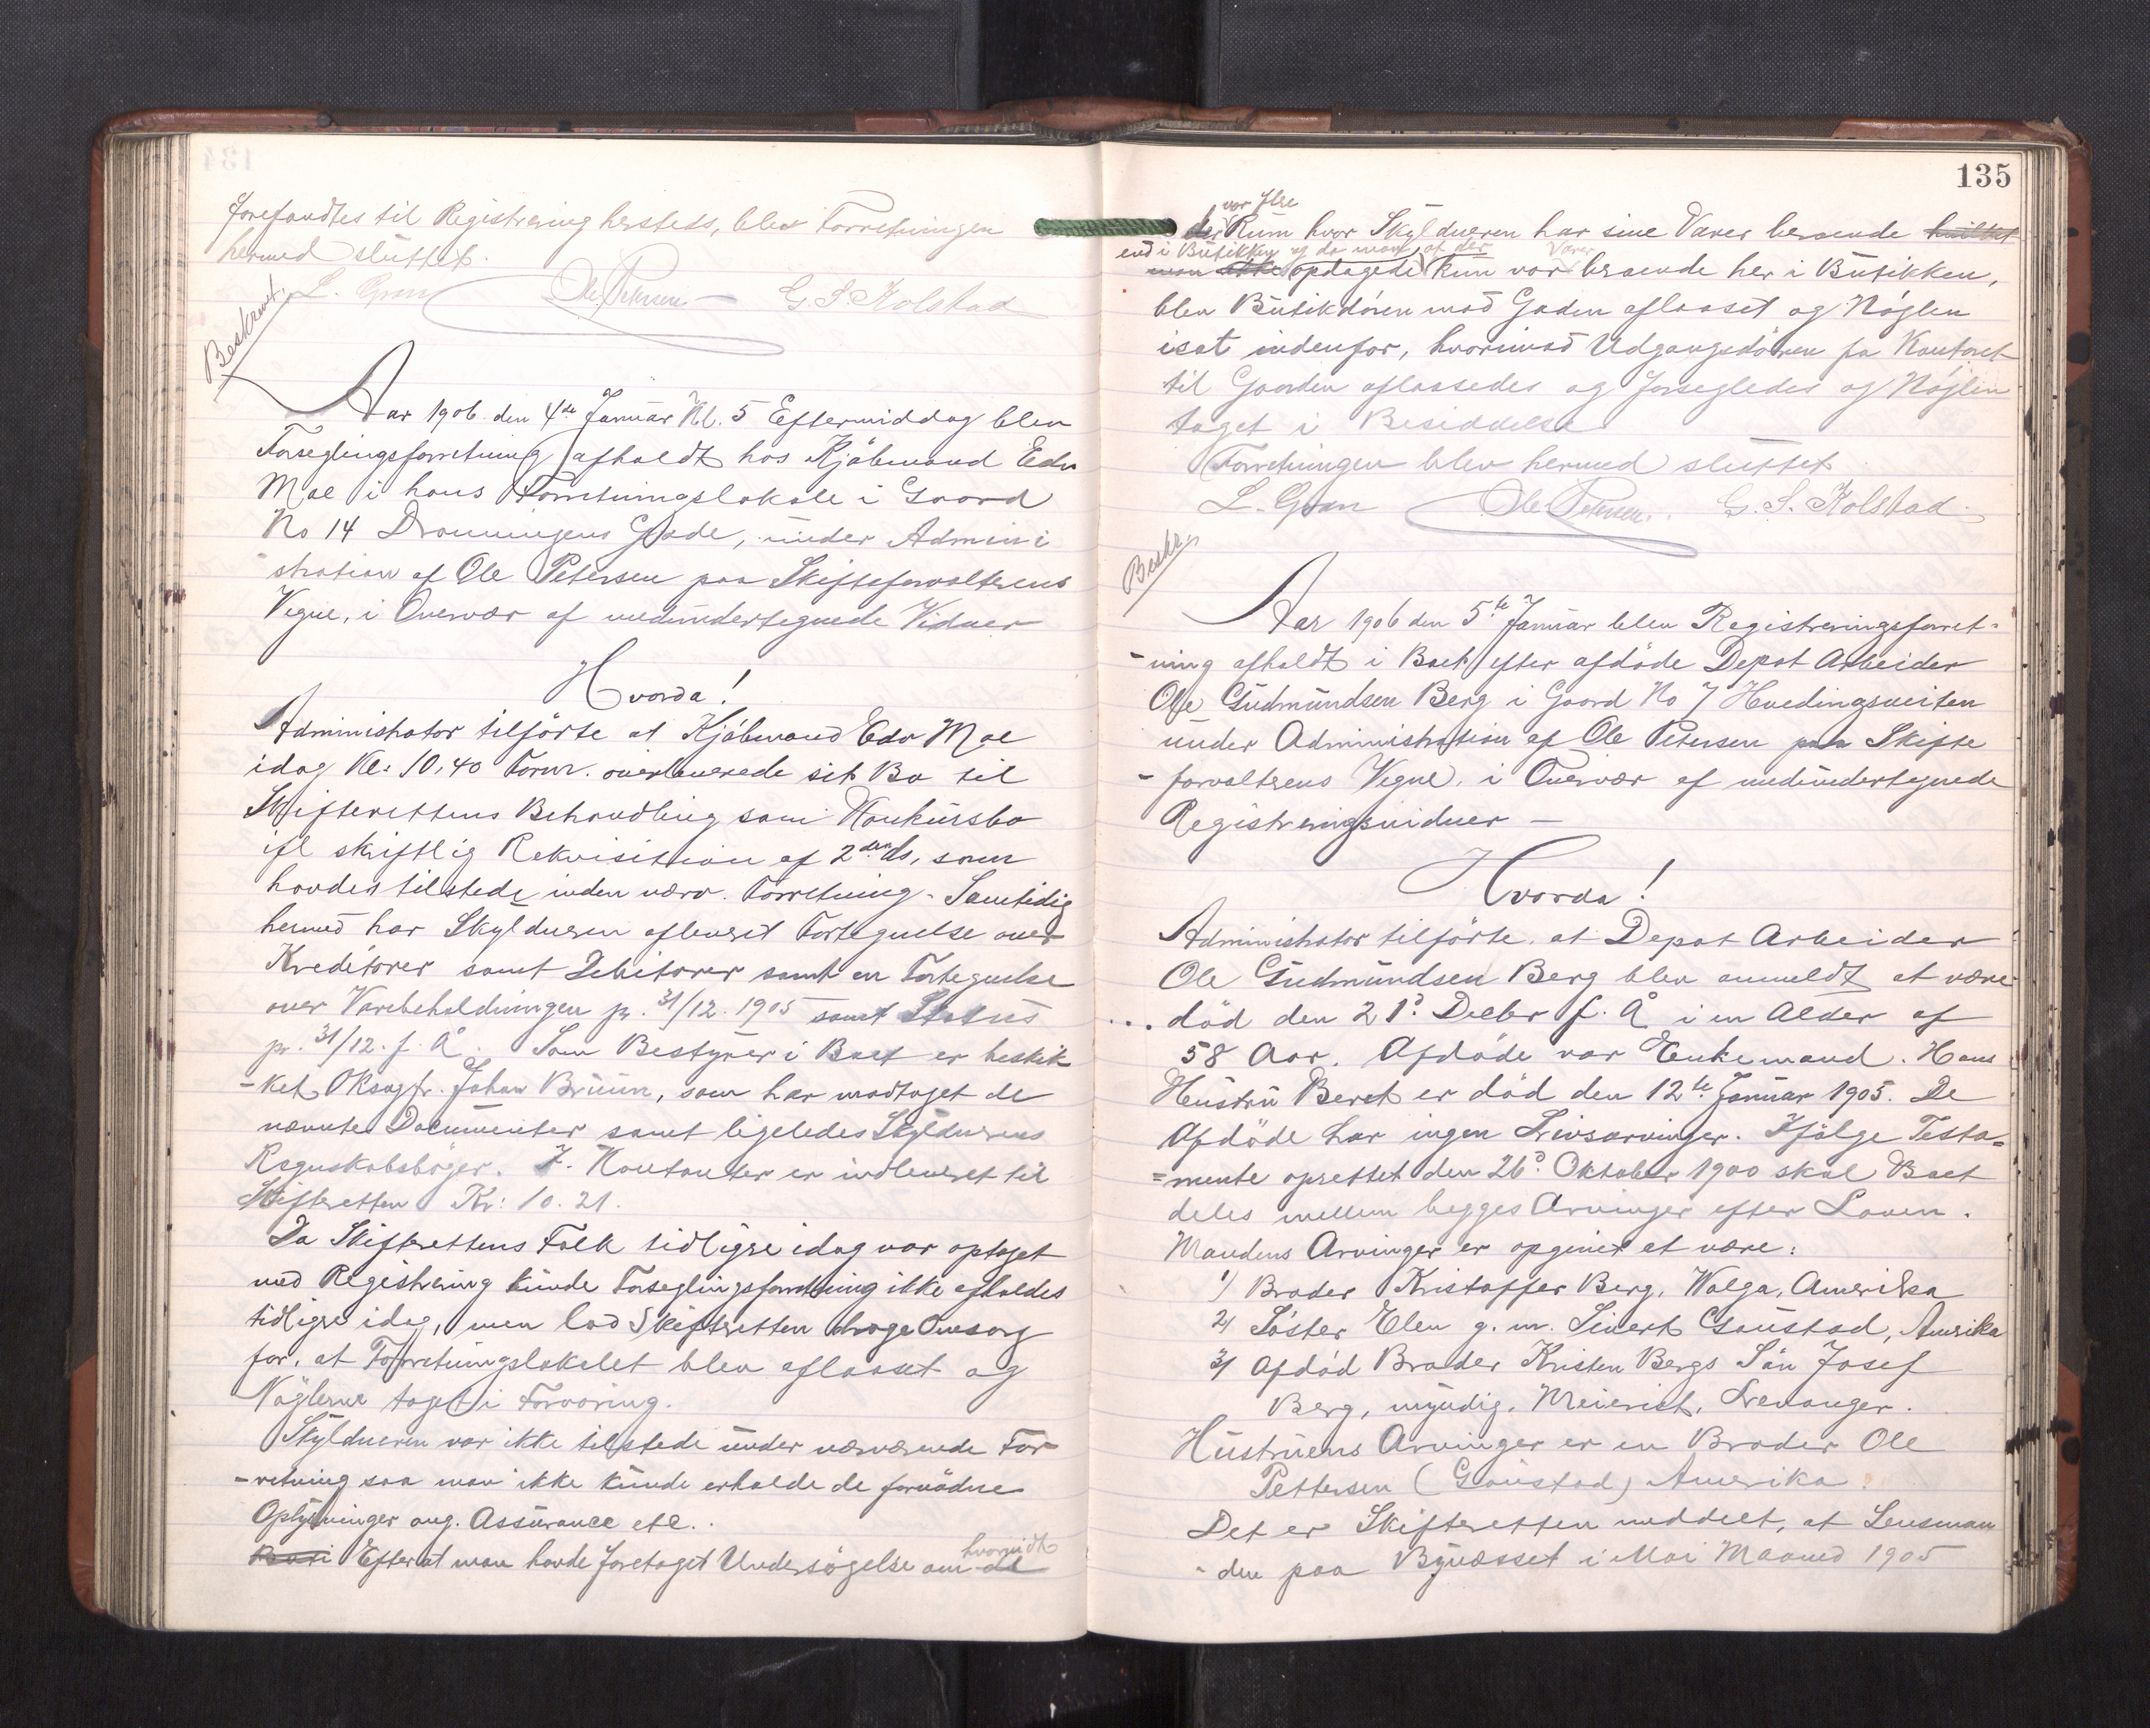 forefandtes til Registrering hersteds, blev Forretningen
hermed sluttet.
L. Gran Ole Petersen G. S. Kolstad
Beskrevet.
Aar 1906 den 4de Januar Kl. 5 Eftermiddag blev
Forseglingsforretning afholdt hos Kjöbmand Edv
Moe i hans Forretningslokale i Gaard
No 14 Dronningens Gade, under Admini
stration af Ole Petersen paa Skifteforvalterens
Vegne, i Overvær af medundertegnede Vidner
Hvorda!
Administrator tilförte at Kjöbmand Edv Moe
idag Kl. 10,40 Form. overleverede sit Bo til
Skifterettens Behandling som Konkursbo
ifl skriftlig Rekvisition af 2den ds, som
havdes tilstede under nærv. Forretning. Samtidig
hermed har Skyldneren afleverit Fortegnelse over
Kreditorer samt Debitorer samt en Fortegnelse
over Varebeholdningen pr. 31/12. 1905 samt Status
pr. 31/12. f. Å. Som Bestyrer i Boet er beskik
-ket OKsagfr. Johan Bruun, som har modtaget de
nævnte Documenter samt ligeledes Skyldnerens
Regnskabsböger. I Kontanter er indleveret til
Skifteretten Kr: 10.21.
Da Skifterettens Folk tidligre idag var optaget
med Registrering kunde Forseglingsforretning ikke afholdes
tidligre idag, men lod Skifteretten drage Omsorg
for, at Forretningslokalet blev aflaaset og
Nöglerne taget i Forvaring.
Skyldneren var ikke tilstede under nærværende For
-retning saa man ikke kunde erholde de fornödne
Oplysninger ang. Assurance etc..
Efterat man havde foretaget Undersögelse om de hvorvidt
135
der var flre Rum hvor Skyldneren har sine Varer beroende hvilket
end i Butikken og da man af der Varer
man ikke opdagede kun var beroende her i Butikken,
blev Butikdören mod Gaden aflaaset og Nöglen
isat indenfor, hvorimod Udgangsdören fra Kontoret
til Gaarden aflaasedes og forsegledes og Nöglen
taget i Besiddelse
Forretningen blev hermed sluttet
L. Gran Ole Petersen. G. S. Kolstad.
Beskr.
Aar 1906 den 5te Januar blev Registreringsforret-
-ning afholdt i Boet efter afdöde Depot Arbeider
Ole Gudmundsen Berg i Gaard No 7 Hvedingsveiten
under Administration af Ole Petersen paa Skifte
-forvalterens Vegne, i Overvær af medundertegnede
Registreringsvidner —
Hvorda!
Administrator tilförte, at Depot Arbeider
Ole Gudmundsen Berg blev anmeldt at være
död den 21de Decbr f. Å i en Alder af
58 Aar. Afdöde var Enkemand. Hans
Hustru Beret er död den 12te Januar 1905. De
Afdöde har ingen Livsarvinger. Ifölge Testa=
=mente oprettet den 26de Oktober 1900 skal Boet
deles mellem begges Arvinger efter Loven.
Mandens Arvinger er opgivet at være:
1/ Broder Kristoffer Berg, Walga, Amerika
2/ Söster Elen g. m. Sivert Gaustad, Amerika
3/ Afdöd Broder Kristen Bergs Sön Josef
Berg, myndig, Meierist, Levanger.
Hustruens Arvinger er en Broder Ole
Pettersen (Gaustad) Amerika.
Det er Skifteretten meddelt, at Lensman
-den paa Bynæsset i Mai Maaned 1905